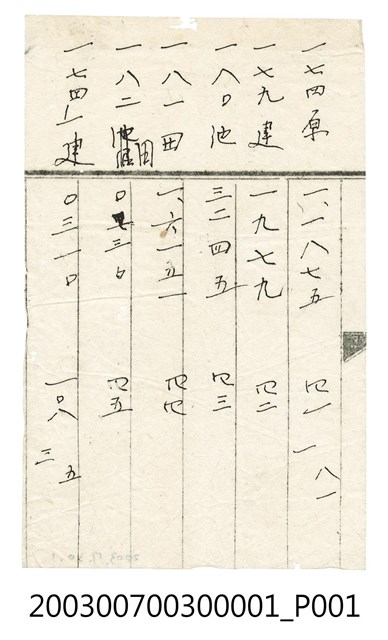 一七四原 一、一八七五 四一 一八一
一七九建 一九七九 四二
一八〇池 三二四五 四三
一八一田 一、六一五一 四四
一八二池田 〇七三〇 四五
一七四-一建 〇三一〇 一〇八 三五
200300700300001_P001